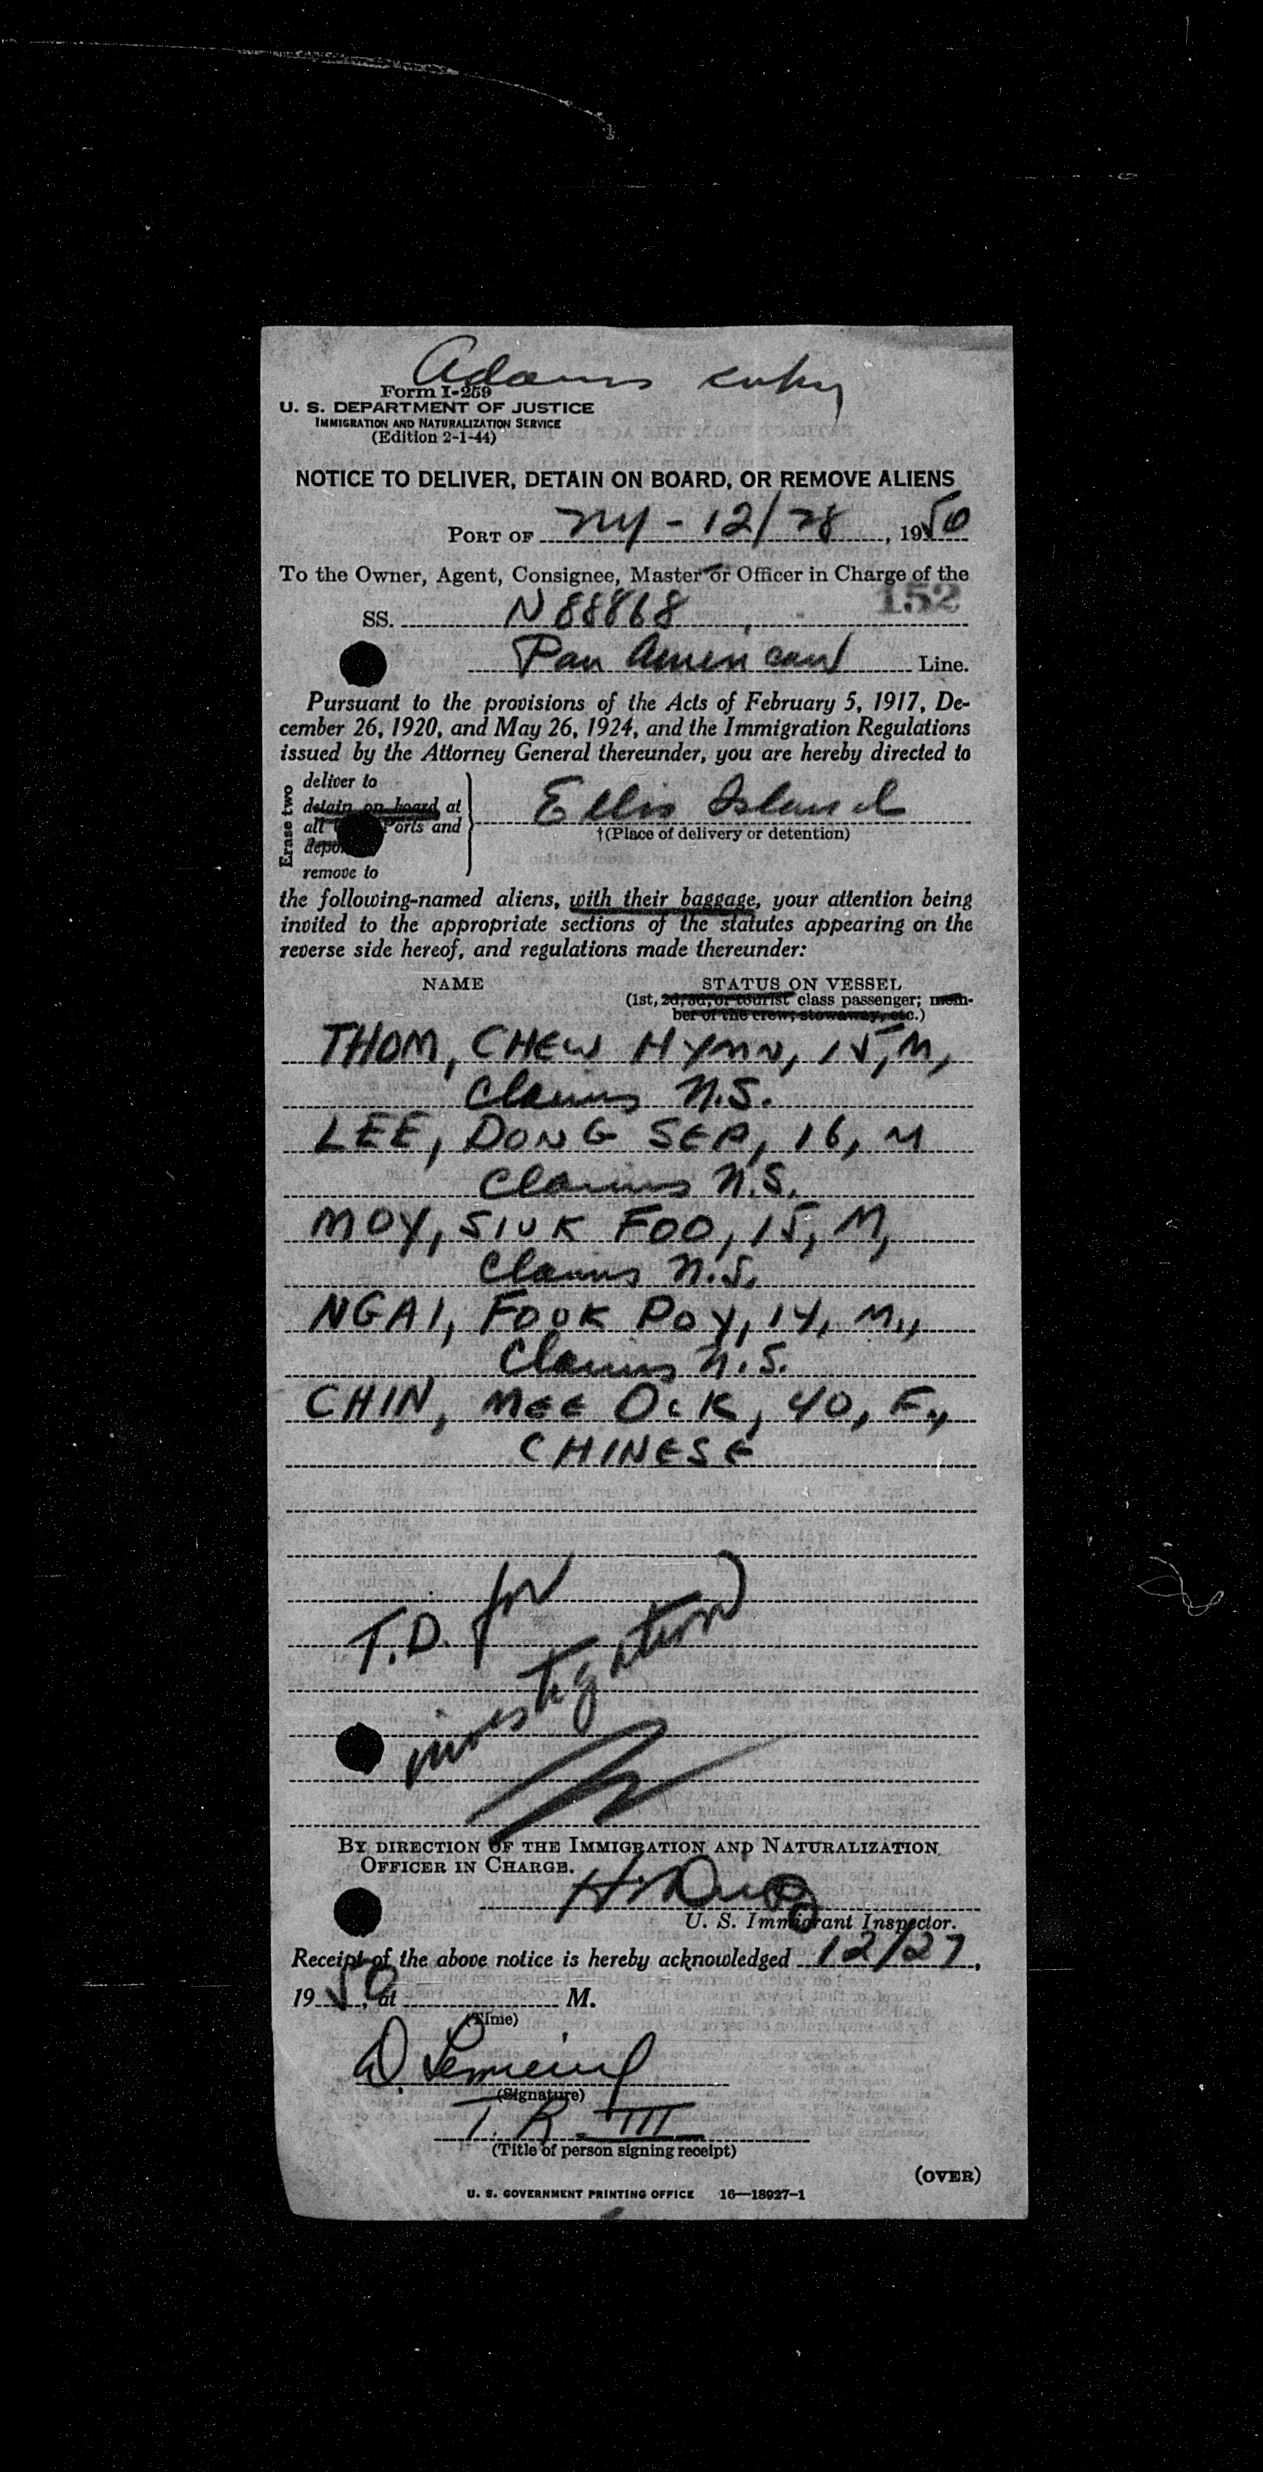 Adams copy
Form I-259
U. S. DEPARTMENT OF JUSTICE
IMMIGRATION AND NATURALIZATION SERVICE
(Edition 2-1-44)
NOTICE TO DELIVER, DETAIN ON BOARD, OR REMOVE ALIENS
PORT OF NY - 12/28, 1950
To the Owner, Agent, Consignee, Master or Officer in Charge of the
152
SS. N88868
Pan American Line.
Pursuant to the provisions of the Acts of February 5, 1917, De-
cember 26, 1920, and May 26, 1924, and the Immigration Regulations
issued by the Attorney General thereunder, you are hereby directed to
Erase two
deliver to
detain on board at
all Ports and
remove to
Ellis Island
†(Place of delivery or detention)
the following-named aliens, with their baggage, your attention being
invited to the appropriate sections of the statutes appearing on the
reverse side hereof, and regulations made thereunder:
NAME STATUS ON VESSEL
(1st, 2d, 3d, or tourist class passenger; mem-
ber of the crew; stowaway, etc.)
THOM, CHEW HYMN, 15, M,
Claims N.S.
LEE, DONG SEP, 16, M
Claims N.S.
MOY, SIUK FOO, 15, M,
Claims N.S.
NGAI, FOOK POY, 14, M.,
Claims N.S.
CHIN, MEE OCK, 40, F.,
CHINESE
T.D. for
investigation
BY DIRECTION OF THE IMMIGRATION AND NATURALIZATION
OFFICER IN CHARGE.
U. S. Immigrant Inspector.
Receipt of the above notice is hereby acknowledged 12/27,
1950, at M.
(Time)
D.
(Signature)
T. R. III
(Title of person signing receipt)
(OVER)
U. S. GOVERNMENT PRINTING OFFICE 16—18927-1